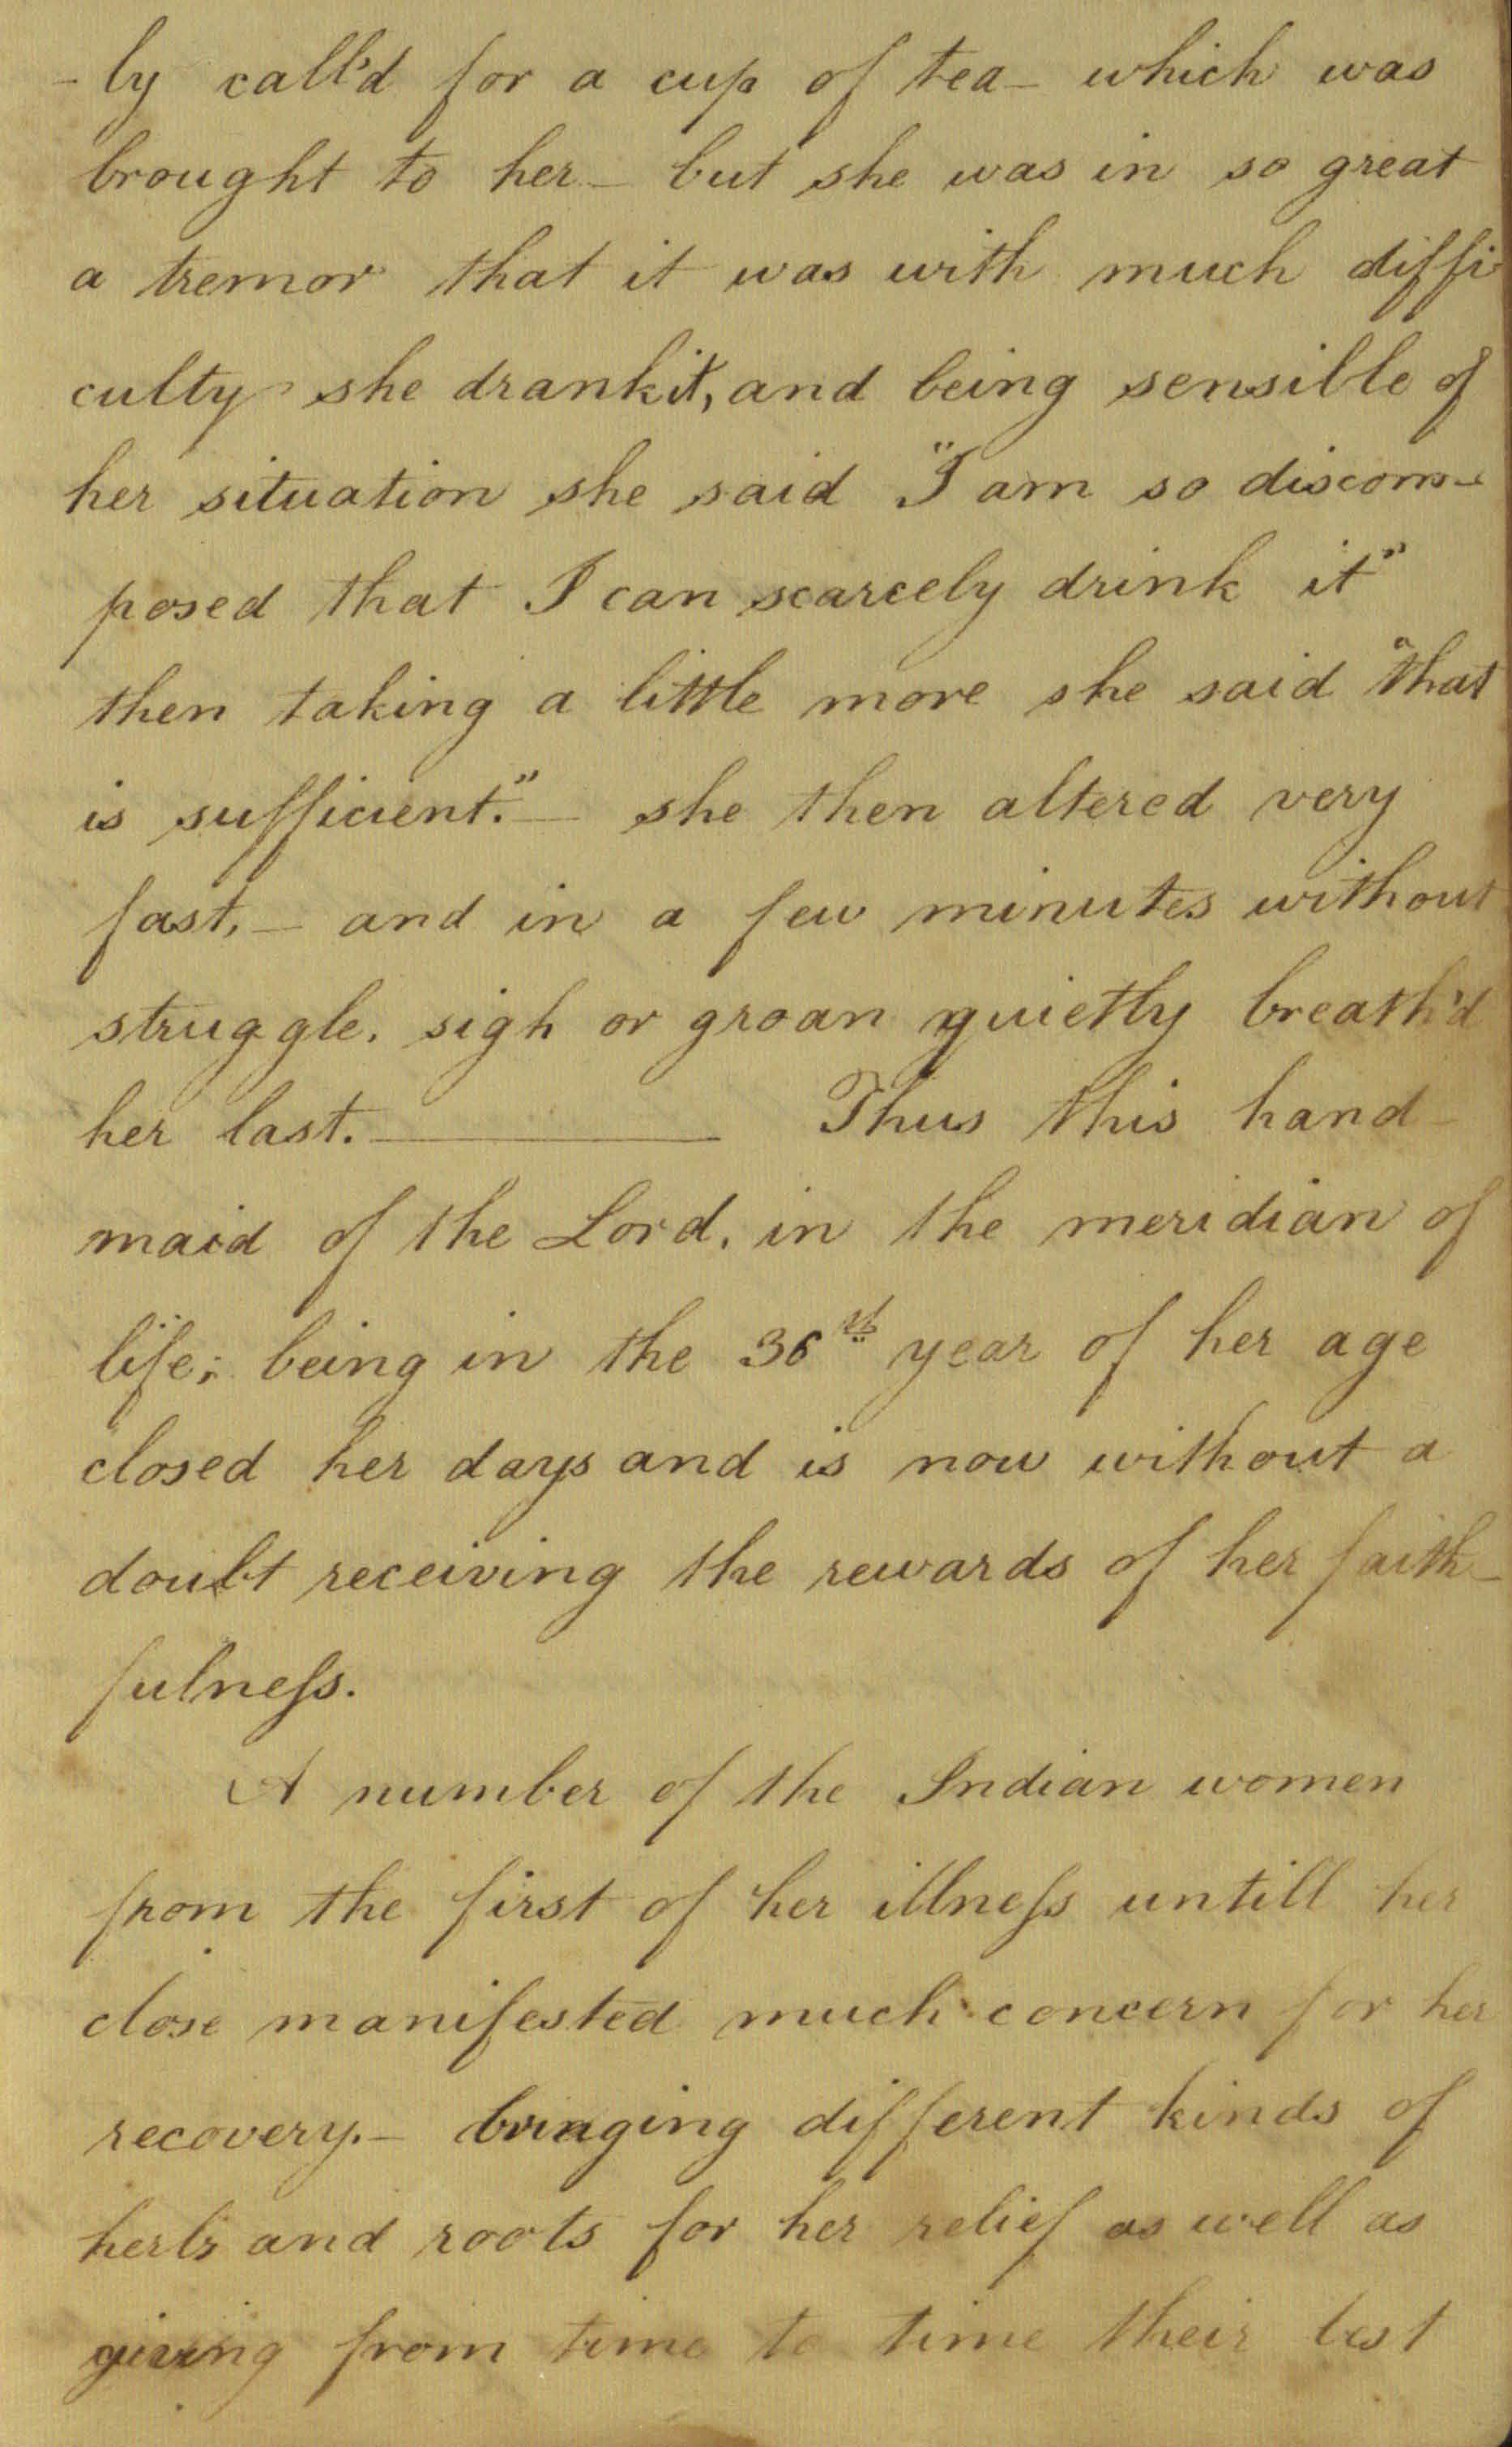 - ly call'd for a cup of tea - which was
brought to her - but she was in so great
a tremor that it was with much diffi
culty she drank it, and being sensible of
her situation she said "I am so discom-
posed that I can scarcely drink it"
then taking a little more she said "that
is sufficient." - she then altered very
fast, - and in a few minutes without
struggle, sigh or groan quietly breath'd
her last. ——— Thus this hand-
maid of the Lord, in the meridian of
life; being in the 36th year of her age
closed her days and is now without a
doubt receiving the rewards of her faith-
fulneſs.
A number of the Indian women
from the first of her illneſs untill her
close manifested much concern for her
recovery. - bringing different kinds of
herbs and roots for her relief as well as
giving from time to time their best